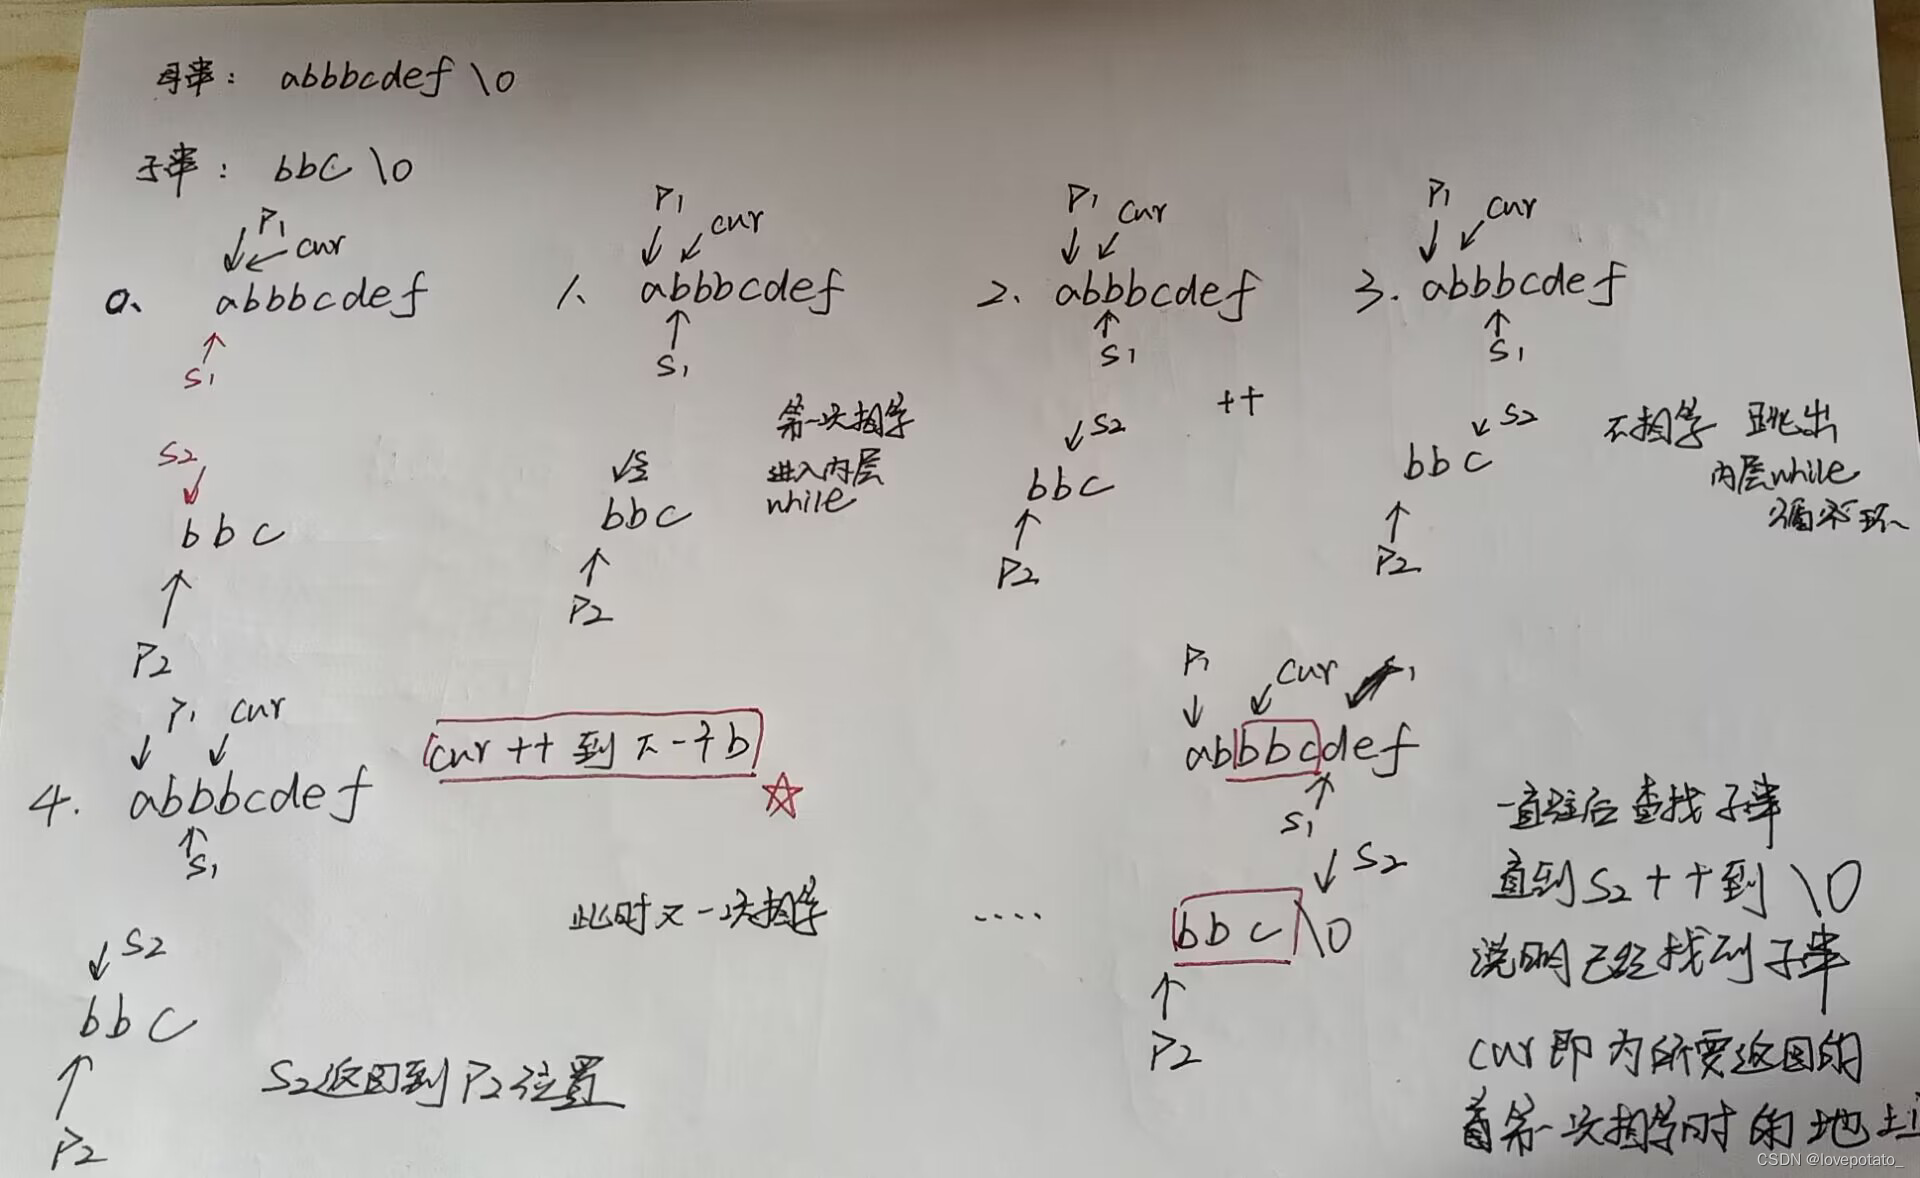 母串： abbbcdef \0
子串： bbc \0
P1
cur
0、 abbbcdef
S1
S2
bbc
P2
P1
cur
1、 abbbcdef
S1
第一次相等
进入内层
while
S2
bbc
P2
P1
cur
2、 abbbcdef
S1
++
S2
bbc
P2
P1
cur
3. abbbcdef
S1
S2
bbc
P2
不相等 跳出
内层while
循环
P1 cur
4. abbbcdef
S1
cur ++ 到下一个b
此时又一次相等
S2
bbc
P2
S2返回到P2位置
....
P1
cur
abbbcdef
S1
S2
bbc\0
P2
一直往后查找子串
直到S2++到 \0
说明已经找到子串
cur即为所需返回的
第一次相等时的地址
CSDN @lovepotato_